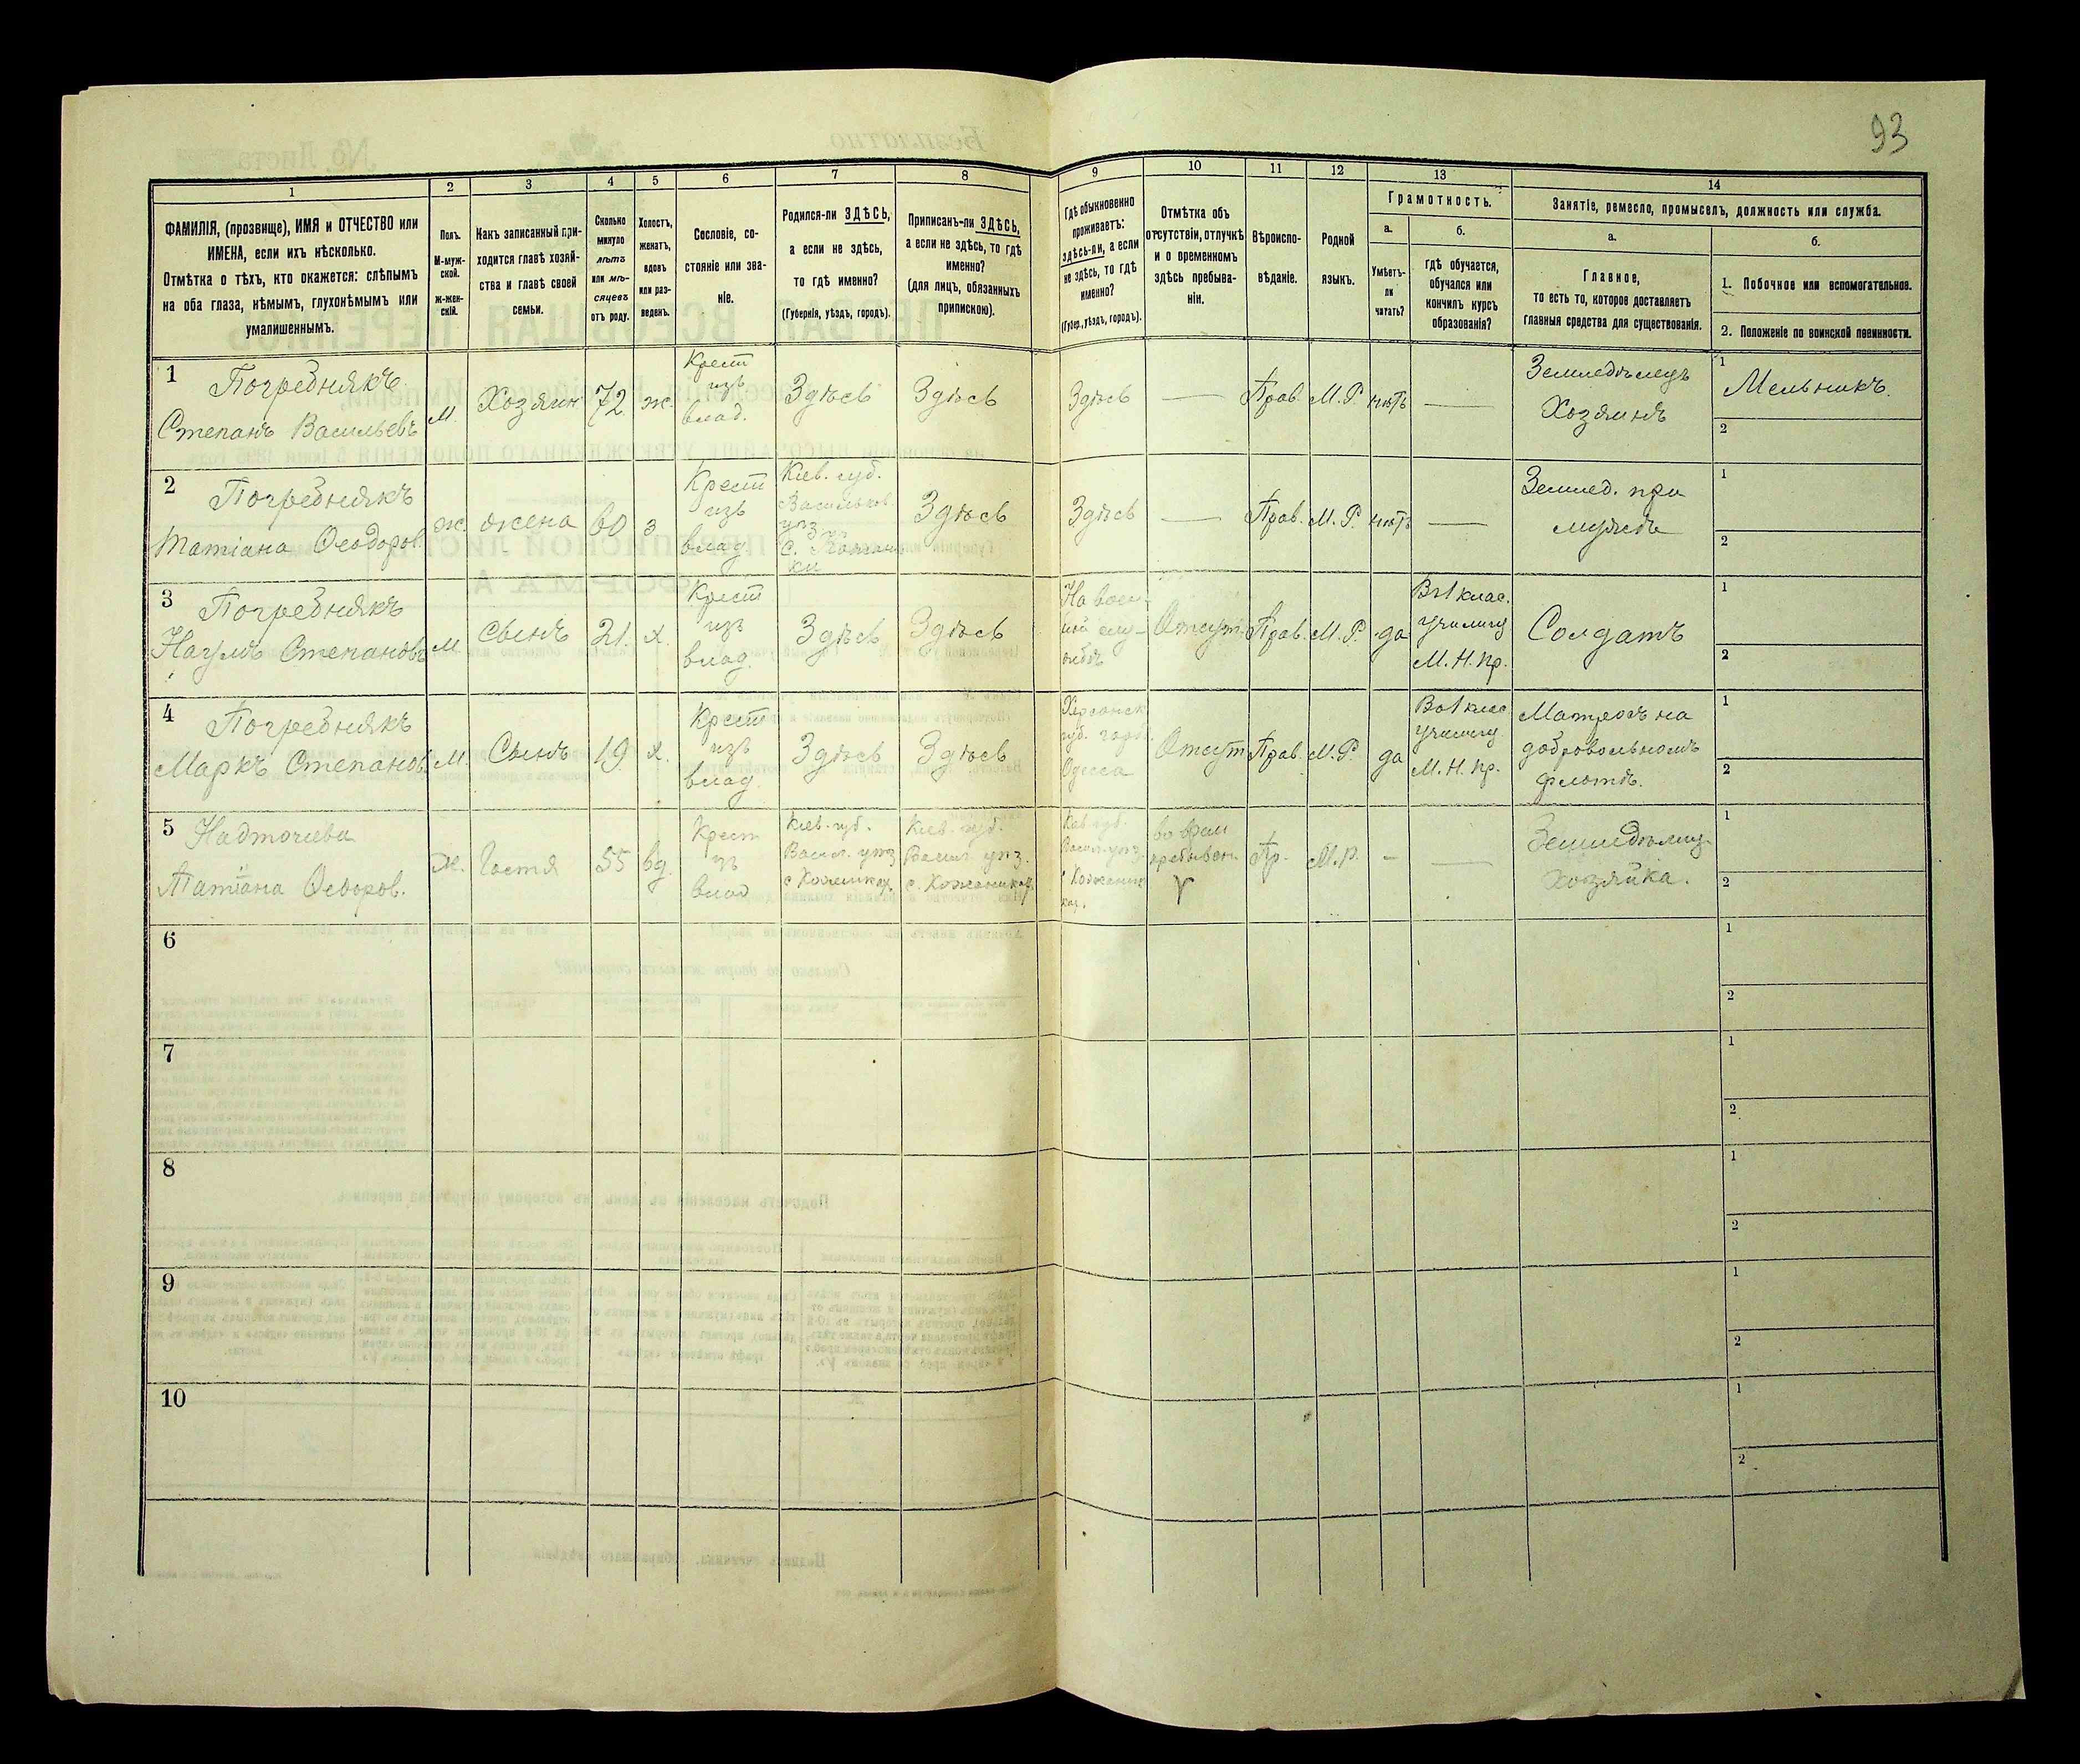 93
1
2
3
4
5
6
7
8
9
10
11
12
13
14
ФАМИЛІЯ, (прозвище), ИМЯ и ОТЧЕСТВО или
ИМЕНА, если ихъ нѣсколько.
Отмѣтка о тѣхъ, кто окажется: слѣпымъ
на оба глаза, нѣмымъ, глухонѣмымъ или
умалишеннымъ.
Полъ.
М-муж-
ской.
Ж-жен-
скій.
Какъ записанный при-
ходится главѣ хозяй-
ства и главѣ своей
семьи.
Сколько
минуло
лѣтъ
или мѣ-
сяцевъ
отъ роду.
Холостъ,
женатъ,
вдовъ
или раз-
веденъ.
Сословіе, со-
стояніе или зва-
ніе.
Родился-ли ЗДѢСЬ,
а если не здѣсь,
то гдѣ именно?
(Губернія, уѣздъ, городъ).
Приписанъ-ли ЗДѢСЬ,
а если не здѣсь, то гдѣ
именно?
(для лицъ, обязанныхъ
припискою).
Гдѣ обыкновенно
проживаетъ:
здѣсь-ли, а если
не здѣсь, то гдѣ
именно?
(Губер., уѣздъ, городъ).
Отмѣтка объ
отсутствіи, отлучкѣ
и о временномъ
здѣсь пребыва-
ніи.
Вѣроиспо-
вѣданіе.
Родной
языкъ.
Грамотность.
а.
Умѣетъ-
ли
читать?
б.
гдѣ обучается,
обучался или
кончилъ курсъ
образованія?
Занятіе, ремесло, промыселъ, должность или служба.
а.
Главное,
то есть то, которое доставляетъ
главныя средства для существованія.
б.
1. Побочное или вспомогательное.
2. Положеніе по воинской повинности.
1
Погребнякъ
Степанъ Васильевъ
м.
Хозяин
72
ж.
Крест
изъ
влад.
Здѣсь
Здѣсь
Здѣсь
—
Прав.
М.Р.
нѣтъ
—
Земледѣлецъ
Хозяинъ
1
Мельникъ.
2
2
Погребнякъ
Татіана Ѳеодоров.
ж.
жена
60
з
Крест
изъ
влад
Кіев. губ.
Васильков.
уѣз
Здѣсь
Здѣсь
—
Прав.
М.Р.
нѣтъ
—
Землед. при
мужѣ
1
2
3
Погребнякъ
Наумъ Степановъ
м
сынъ
21.
х.
Крест
изъ
влад.
Здѣсь
Здѣсь
На воен-
ной слу-
жбѣ
Отсут.
Прав.
М.Р.
да
Въ 1 клас.
училищ
М.Н.Пр.
Солдатъ
1
2
4
Погребнякъ
Маркъ Степанов.
м.
Сынъ
19
х.
Крест
изъ
влад.
Здѣсь
Здѣсь
Херсонск
губ. горо.
Одесса
Отсут
Прав.
М.Р.
да
Во 1 клас
училищ
М.Н.Пр.
Матросъ на
добровольномъ
флотѣ.
1
2
5
Надточіева
Татіана Ѳеодоров.
ж.
Гостя
55
вд.
Крест
из
влад
Кіев. губ.
Васил. уѣз
Кіев. губ.
Васил. уѣз.
Кіев. губ.
Васил. уѣз.
во врем
пребыван.
Пр.
М.р.
-
—
Земледѣлиц.
Хозяйка.
1
2
6
1
2
7
1
2
8
1
2
9
1
2
10
1
2